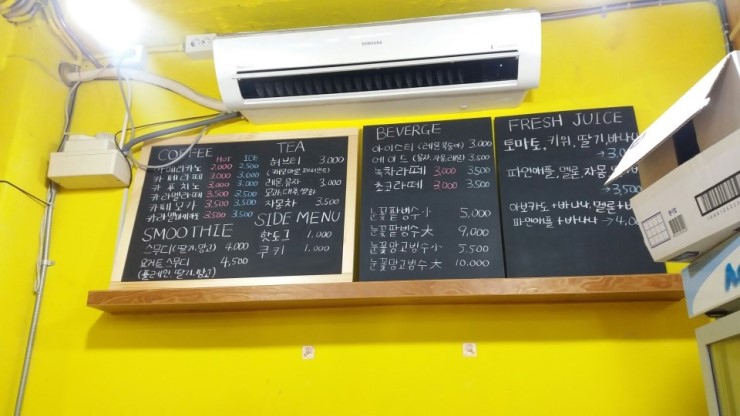 SAMSUNG
COFFEE HOT ICE
아메리카노 2.000 2.500
카페라떼 3.000 3.000
카푸치노 3.000 3.000
카라멜라떼 3.500 3.500
카페모카 3.500 3.500
카라멜 3.500 3.500
SMOOTHIE
스무디(딸기,망고) 4.000
요거트 스무디 4,500
(플레인, 딸기,망고)
TEA
허브티 3.000
(캐모마일, 페퍼민트)
레몬,유자 3.000
모과,대추,쌍화
자몽차 3.500
SIDE MENU
핫도그 1.000
쿠키 1.000
BEVERGE
아이스티(레몬,복숭아) 3.000
에이드 3.500
녹차라떼 3.000 3.500
초코라떼 3.000 3.500
눈꽃팥빙수 小 5.000
눈꽃팥빙수 大 9,000
눈꽃망고빙수 小 5.500
눈꽃망고빙수 大 10.000
FRESH JUICE
토마토, 키위, 딸기, 바나나
파인애플, 멜론, 자몽
→ 3,500
아보카도+바나나, 멜론+
파인애플+바나나 →